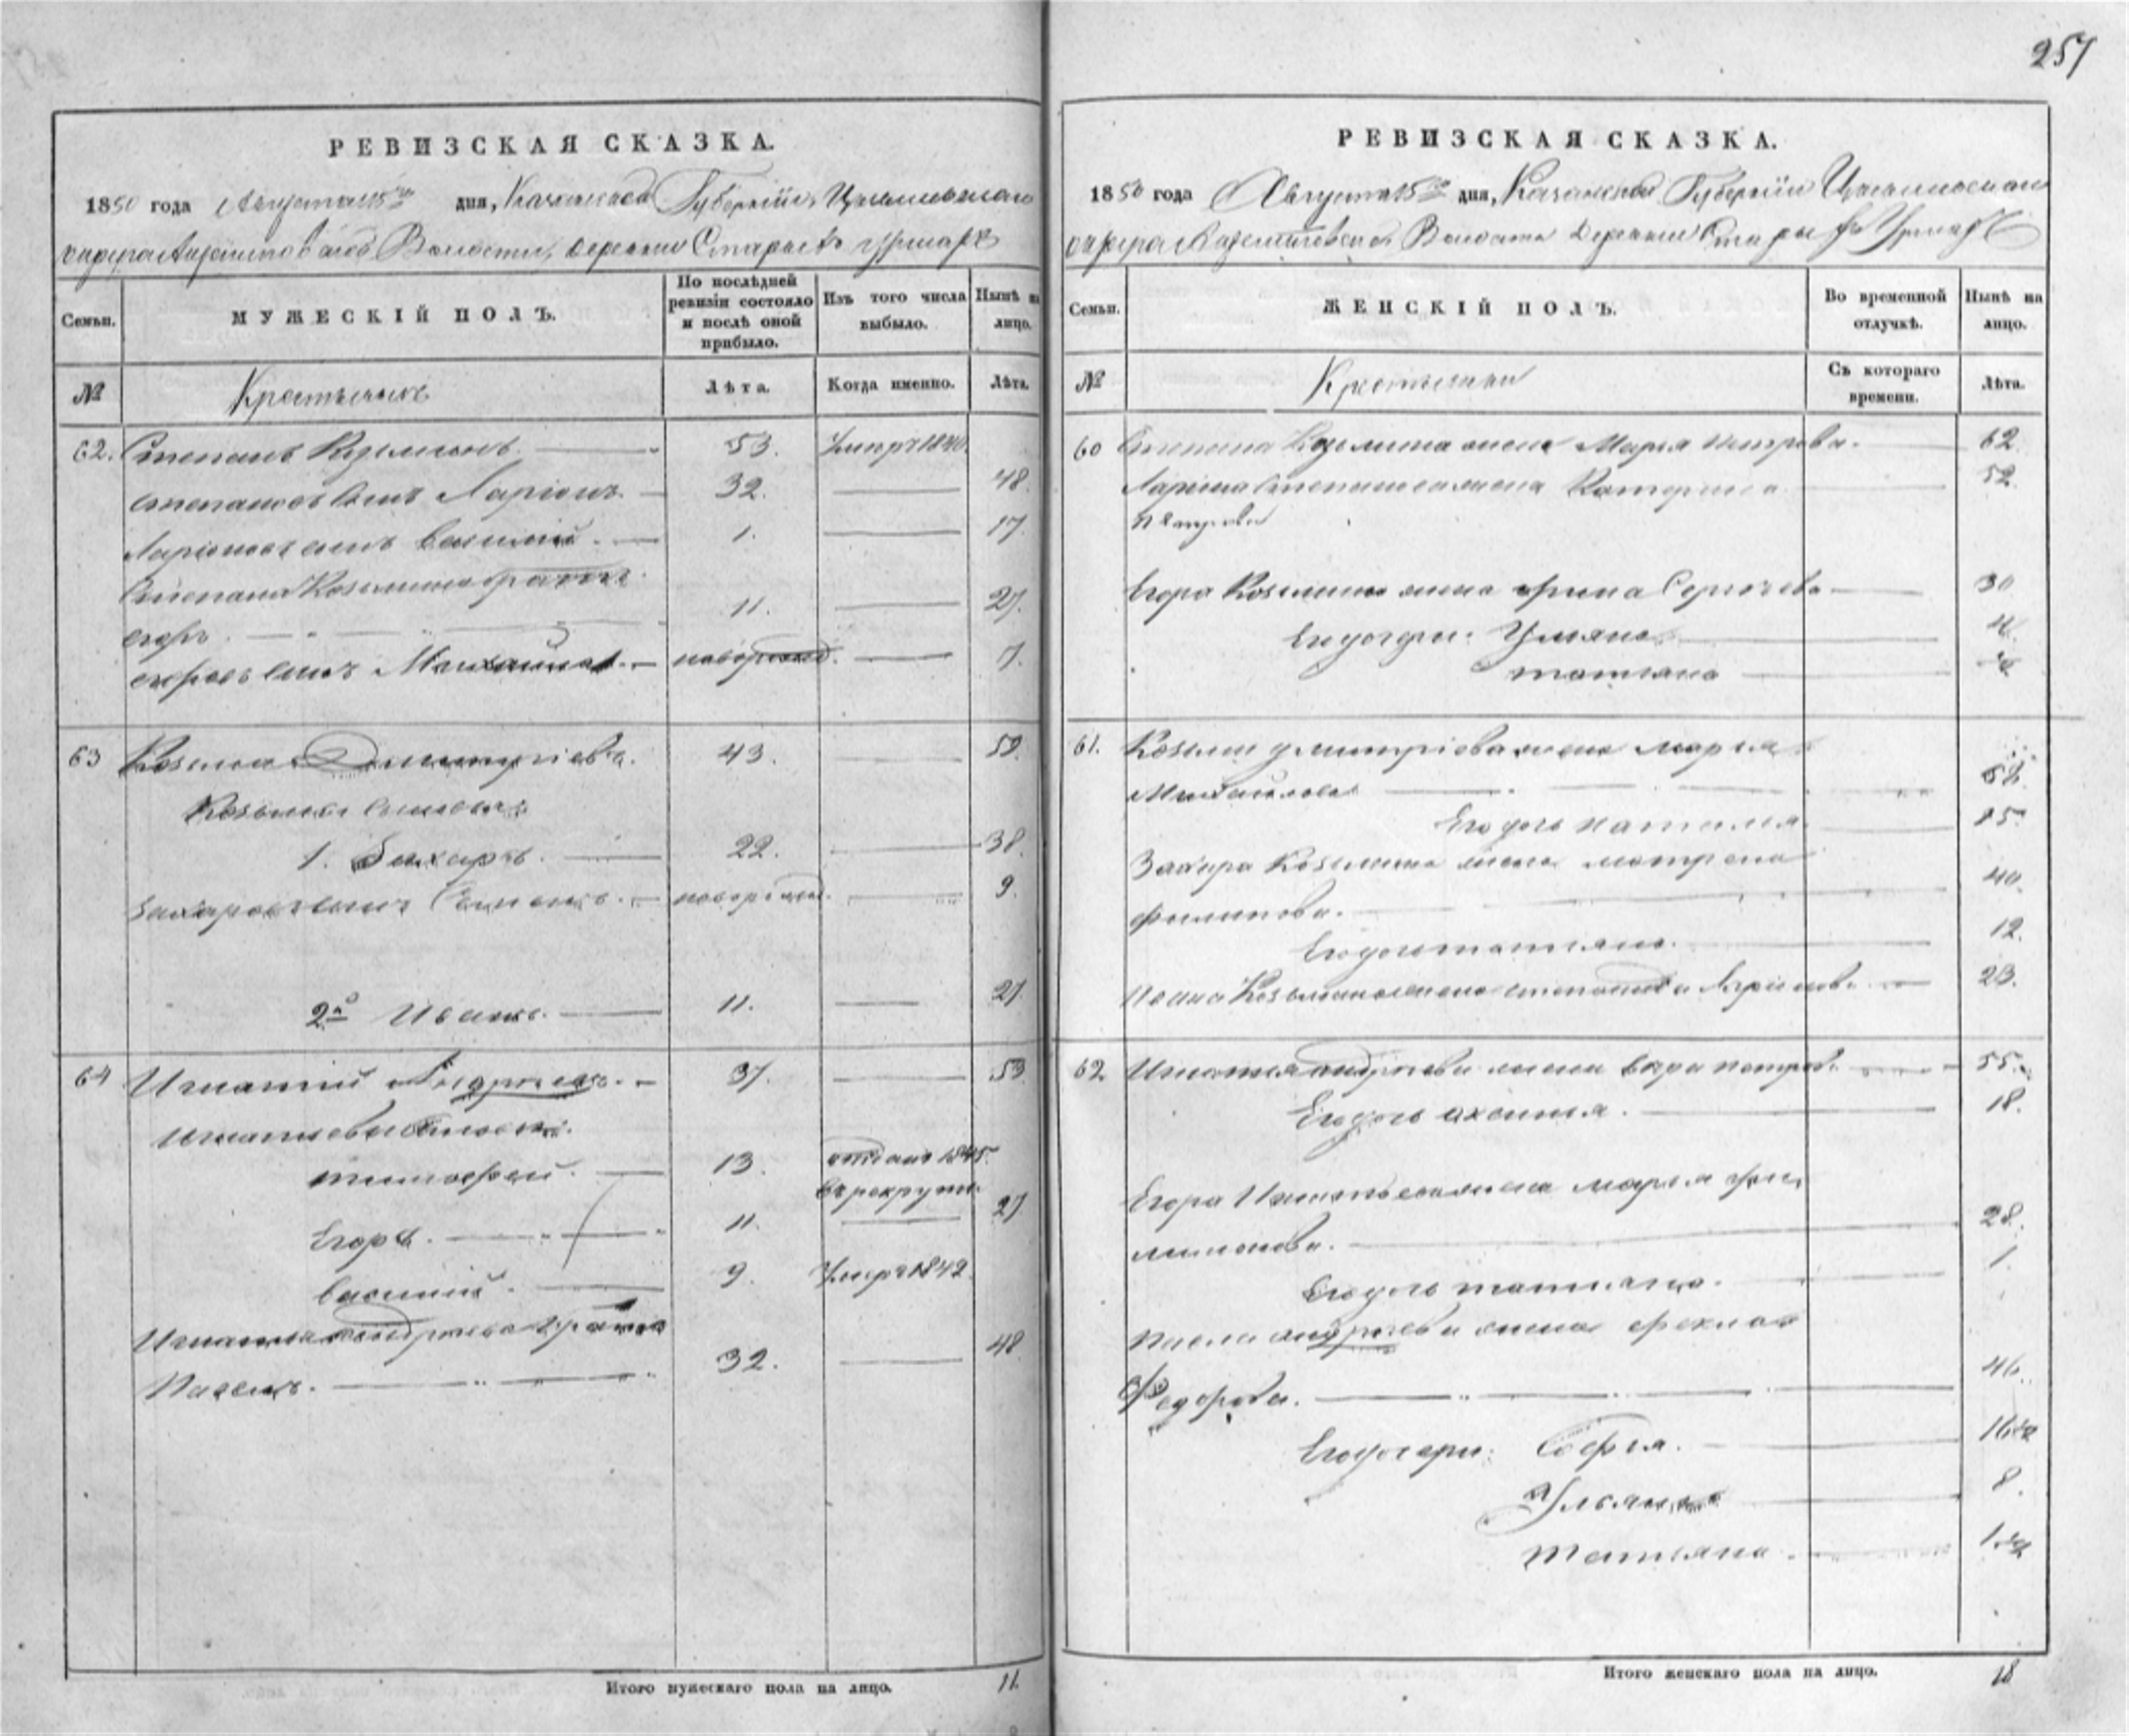 257
РЕВИЗСКАЯ СКАЗКА.
1850 года Августа 15го дня, Казанской Губернiи Цивильскаго
округа Волости, деревни Старыхъ Урмаръ
Семьи.
МУЖЕСКIЙ ПОЛЪ.
По послѣдней ревизiи состояло и послѣ оной прибыло.
Изъ того числа выбыло.
Нынѣ на лицо.
№
Крестьянъ
Лѣта.
Когда именно.
Лѣта.
62. Степанъ Козьминъ. 53. Умеръ 1840.
Степановъ сынъ Ларiонъ 32. 48.
Ларiоновъ сынъ Василiй. 1. 17.
Степана Козьмина братъ
Егоръ. 11. 27.
Егоровъ сынъ Михайла. новорожд. 7.
63 Козьма Дмитрiевъ. 43. 59.
Козьмы сыновья:
1. Захаръ. 22. 38.
Захаровъ сынъ Семенъ. новорожд. 9.
2й Иванъ. 11. 27
64 Игнатiй Андреевъ. 37. 53
Игнатьевы сыновья:
Тимофей. 13. отданъ 1845.
въ рекруты.
Егоръ. 11. 27
Василiй. 9. Умеръ 1842.
Игнатья Андреева братъ
Павелъ. 32. 48
Итого мужескаго пола на лицо. 11.
РЕВИЗСКАЯ СКАЗКА.
1850 года Августа 15го дня, Казанской Губернiи Цивильскаго
округа Волости Деревни Старыхъ Урмаръ
Семьи.
ЖЕНСКIЙ ПОЛЪ.
Во временной отлучкѣ.
Нынѣ на лицо.
№
Крестьянки
Съ котораго времени.
Лѣта.
60 Степана Козьмина жена Марья Петрова. 62.
Ларiона Степанова жена Катерина 52.
Петрова
Егора Козьмина жена Орина Сергеева 30
Его дочери: Ульяна 4.
Татьяна
61. Козьмы Дмитрiева жена Марья
Михайлова
Его дочь Наталья. 15.
Захара Козьмина жена Матрена
Филипова. 40.
Его дочь Татьяна. 12.
Ивана Козьмина жена Степанида Ларiонова. 23.
62. Игнатья Андреева жена Вера Петрова. 55.
Его дочь Аксинья. 18.
Егора Игнатьева жена Марья Фи-
липова. 28.
Его дочь Татьяна. 1.
Павла Андреева жена Фекла
Федорова. 46.
Его дочери: Софья. 16
Ульяна 8.
Татьяна. 1
Итого женскаго пола на лицо. 18